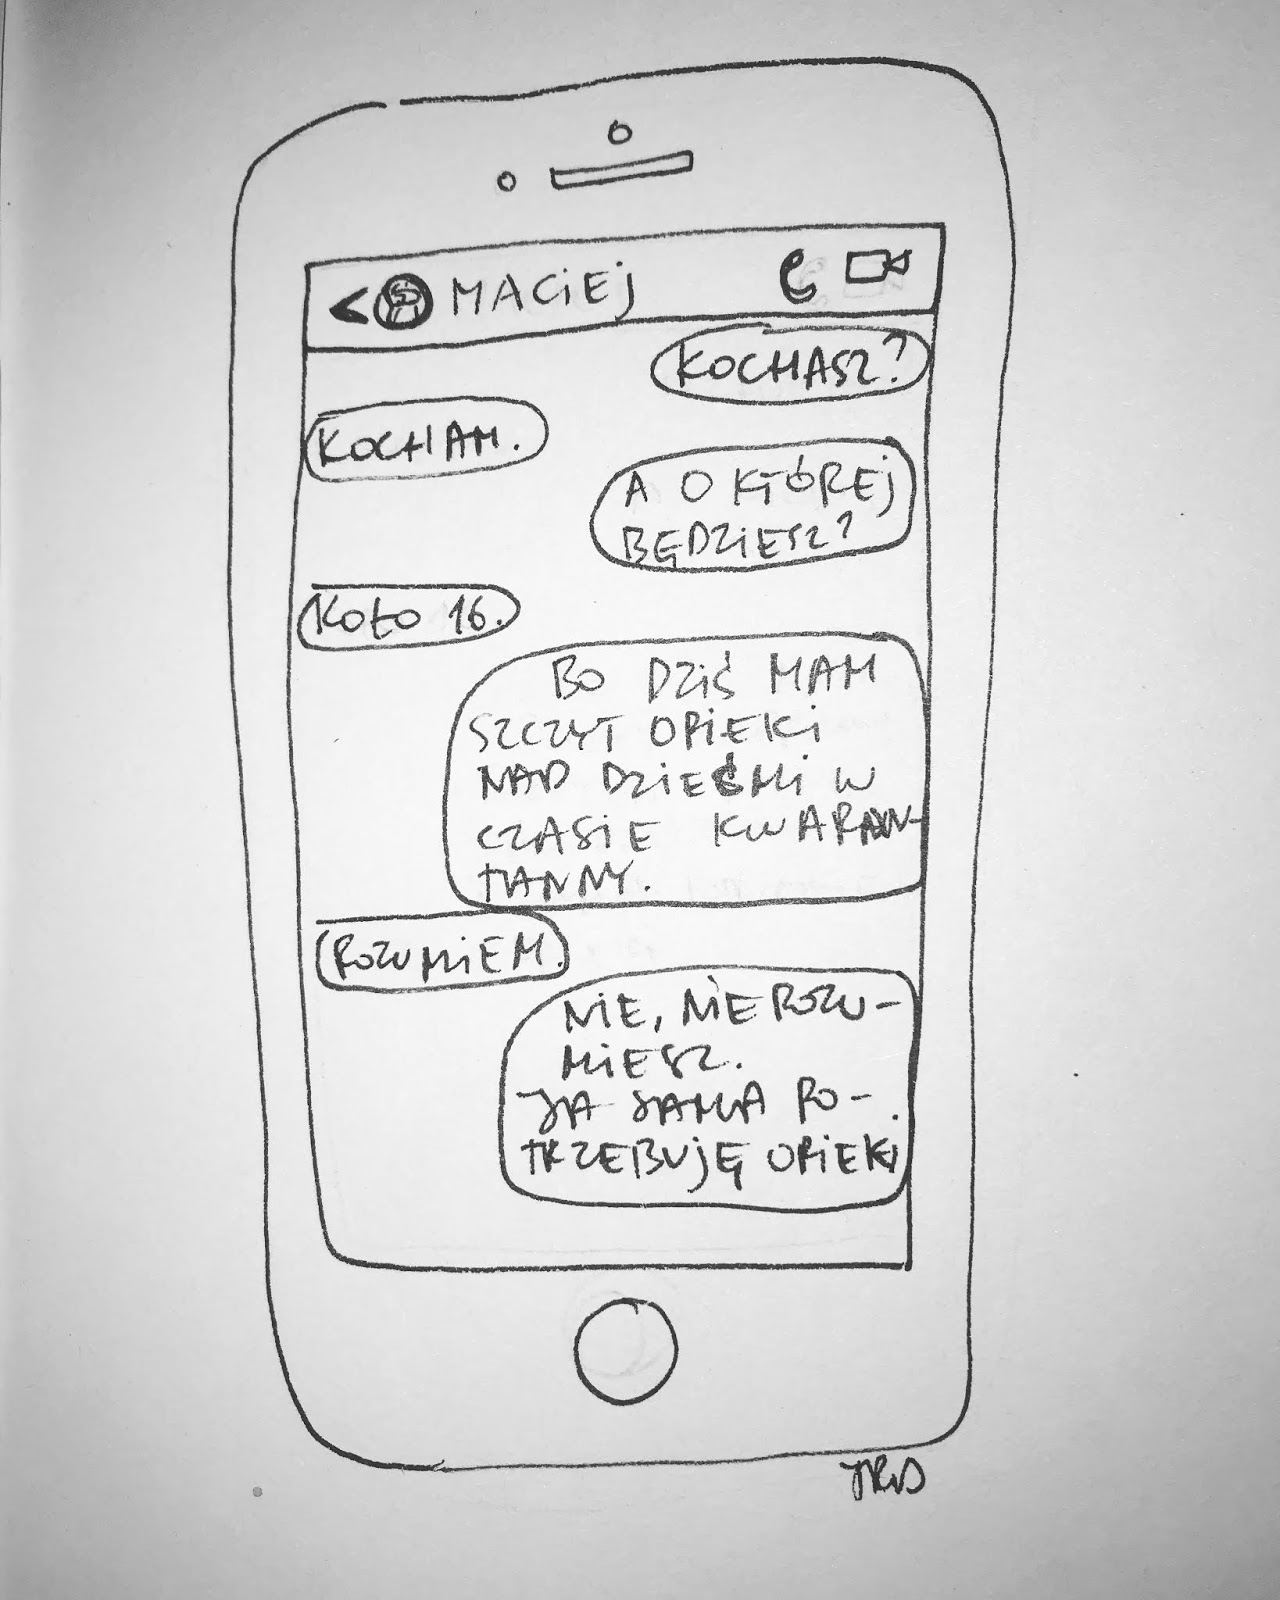 MACIEJ
KOCHASZ?
KOCHAM.
A O KTÓREJ
BĘDZIESZ?
KOŁO 16.
BO DZIŚ MAM
SZCZYT OPIEKI
NAD DZIEĆMI W
CZASIE KWARAN-
TANNY.
ROZUMIEM.
NIE, NIE ROZU-
MIESZ.
JA SAMA PO-
TRZEBUJĘ OPIEKI